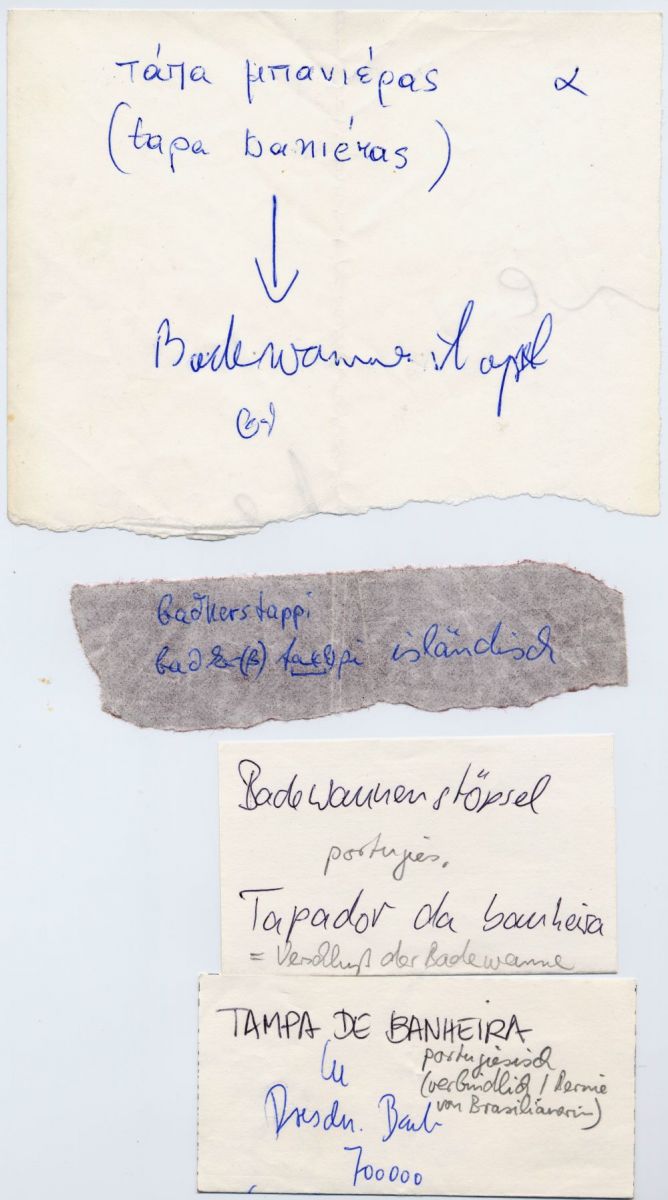 τάπα μπανιέρας α
(tapa banιέras)
Badewannenstöpsel
baðkerstappi
isländisch
Badewannenstöpsel
portugies.
Tapador da banheira
= Verschluß der Badewanne
TAMPA DE BANHEIRA
portugiesisch
(verbindlich /
von Brasilianerin)
Dresdn. Bank
700000